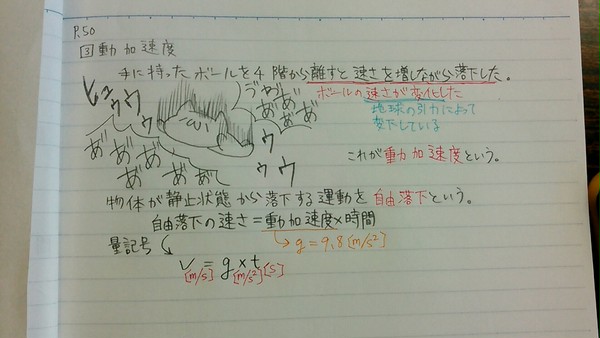 P.50
③動加速度
手に持ったボールを4階から離すと速さを増しながら落下した。
ボールの速さが変化した
地球の引力によって
落下している
ヒュゥウウ
あ゛あ゛あ゛
あ゛あ゛
あ゛あ゛
あ゛あ゛
あ゛あ゛
ゥウ
これが重力加速度という。
物体が静止状態から落下する運動を自由落下という。
自由落下の速さ=動加速度×時間
g=9.8[m/s²]
量記号
v=g×t
[m/s] [m/s²][s]